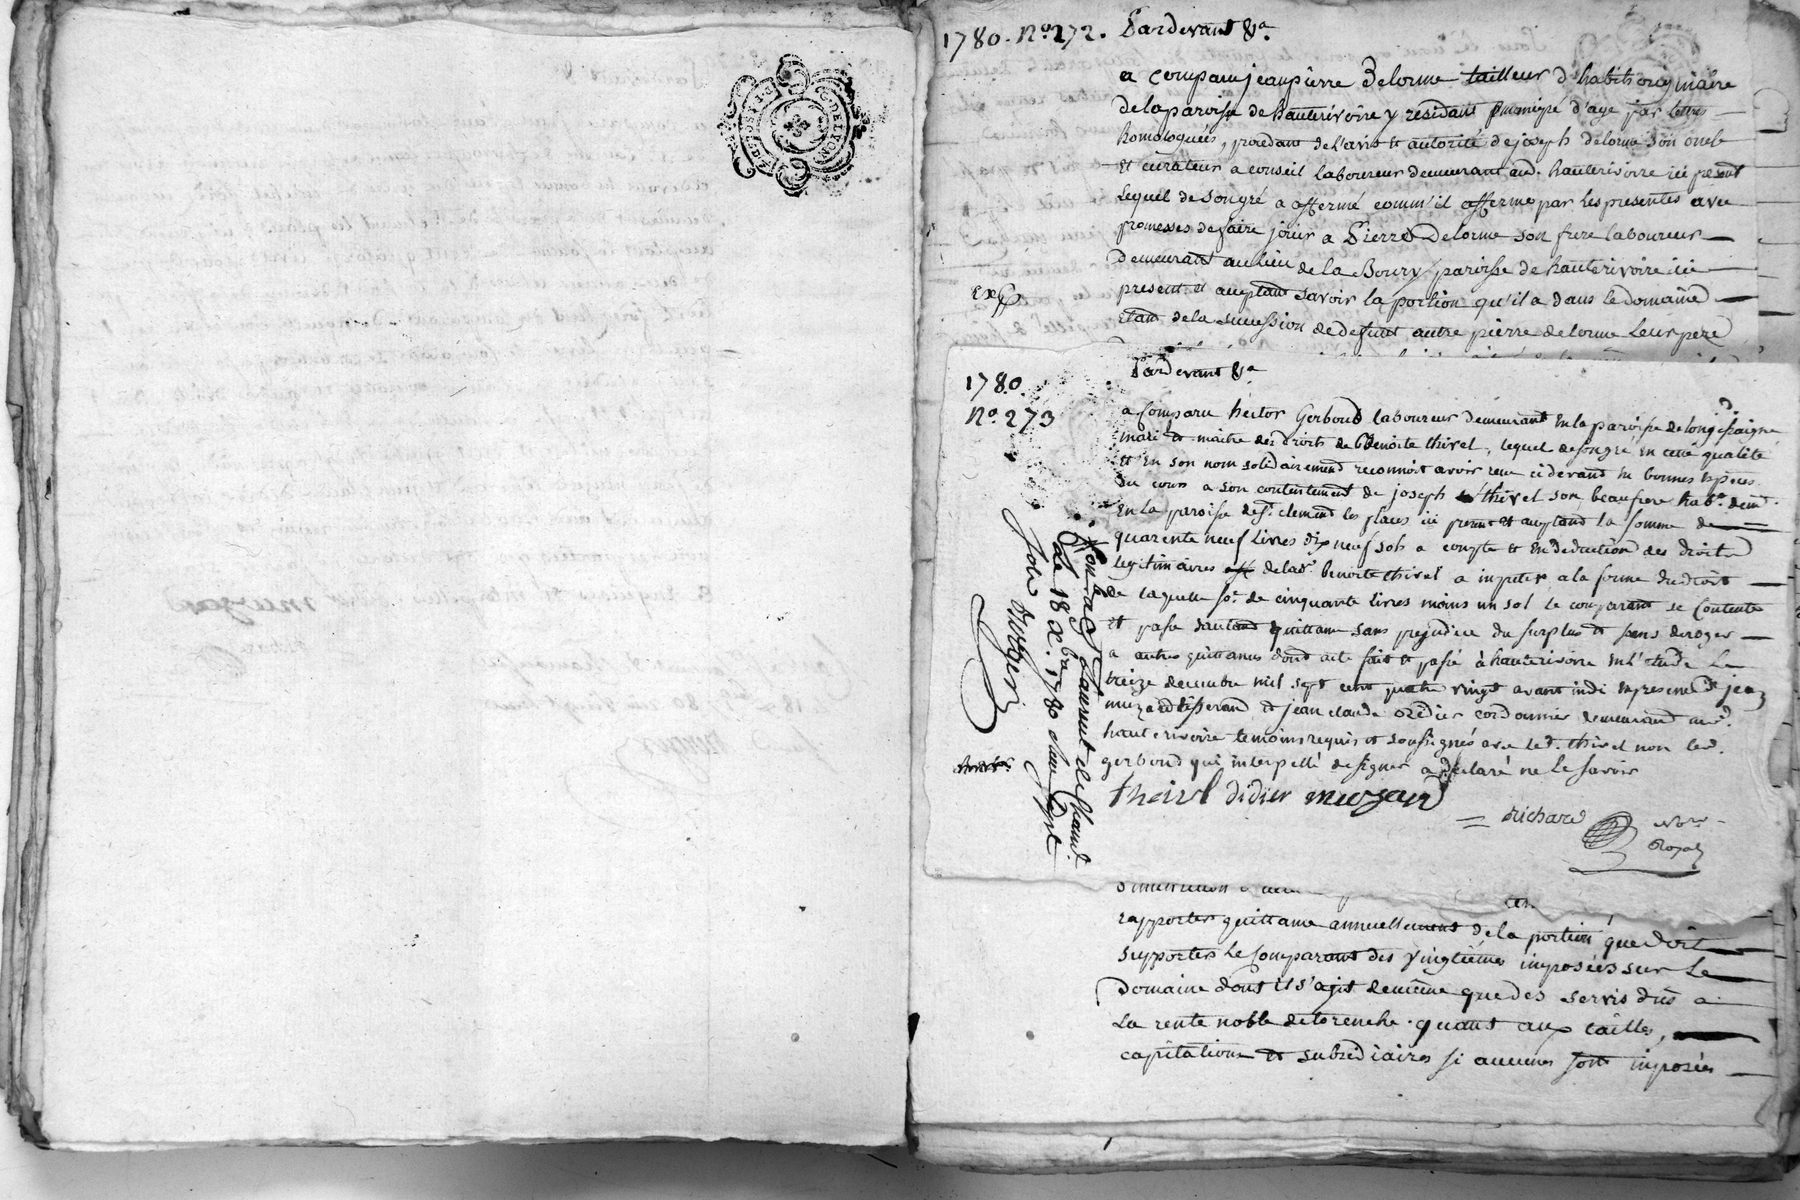 G. DE LYON
1780. No. 272. Pardevant &a.
a comparu jean pierre Delorme tailleur d'habits originaire
de la paroisse de hauterivoire y residant emancipé d'age par lettres
homologuées, procedant de l'avis et autorité de joseph delorme son oncle
et curateur a conseil laboureur demeurant aud. hauterivoire ici present
lequel de son gré a affermé comm'il afferme par les presentes avec
promesses de faire jouir a Pierre Delorme son frere laboureur
demeurant au lieu de la Boury paroisse de hauterivoire ici
present et acceptant savoir la portion qu'il a dans le domaine
etant de la succession de defunt autre pierre delorme leur pere
exp
1780.
No. 273
Pardevant &a
a comparu hector Gerboud laboureur demeurant en la paroisse de longessaigne
mari et maitre des droits de Benoite thivel, lequel de son gré en cette qualité
et en son nom solidairement reconnoit avoir recu cidevant en bonnes especes
du cours a son contentement de joseph thivel son beaufrere hab. demt.
en la paroisse de st. clement les places ici present et acceptand la somme de
quarente neuf livres dix neuf sols a compte et en deduction des droits
legitimaires de lad. benoite thivel a imputer a la forme du droit
de laquelle se. de cinquante livres moins un sol le comparant se contente
et passe d'autand quittance sans prejudice du surplus et sans deroger
a autres quittances dont acte fait et passé à hauterivoire en l'etude le
treize decembre mil sept cent quatre vingt avant midi en presence de jean
muzard tisserand et jean claude didier cordonnier demeurand aud.
hauterivoire temoins requis et soussignés avec led. thivel non led.
gerboud qui interpellé de signer a declaré ne le savoir
thivel didier muzard
Richard
Nore
Royal
Con.le a St Laurent de Cham.
le 18 Xbre. 1780
rapporter quittance annuellement de la portion que doit
supporter le comparant des vingtiemes imposées sur le
domaine dont il s'agit de même que des servis dus a
la rente noble de torenche. quant aux tailles,
capitations et subsidiaires si aucunes sont imposées